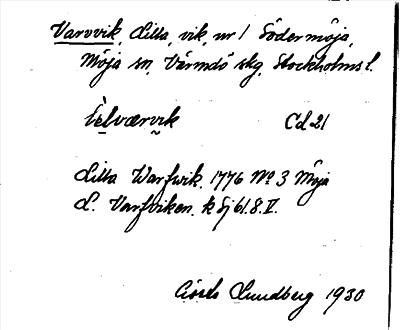 Varvvik, Lilla, vik, nr 1 Södermöja,
Möja sn, Värmdö skg, Stockholms l.
Lilværvik Cd 21
Lilla Warfwik. 1776 No 3 Möja
L. Varfviken. k Sj 61.8.V.
Lundberg 1930